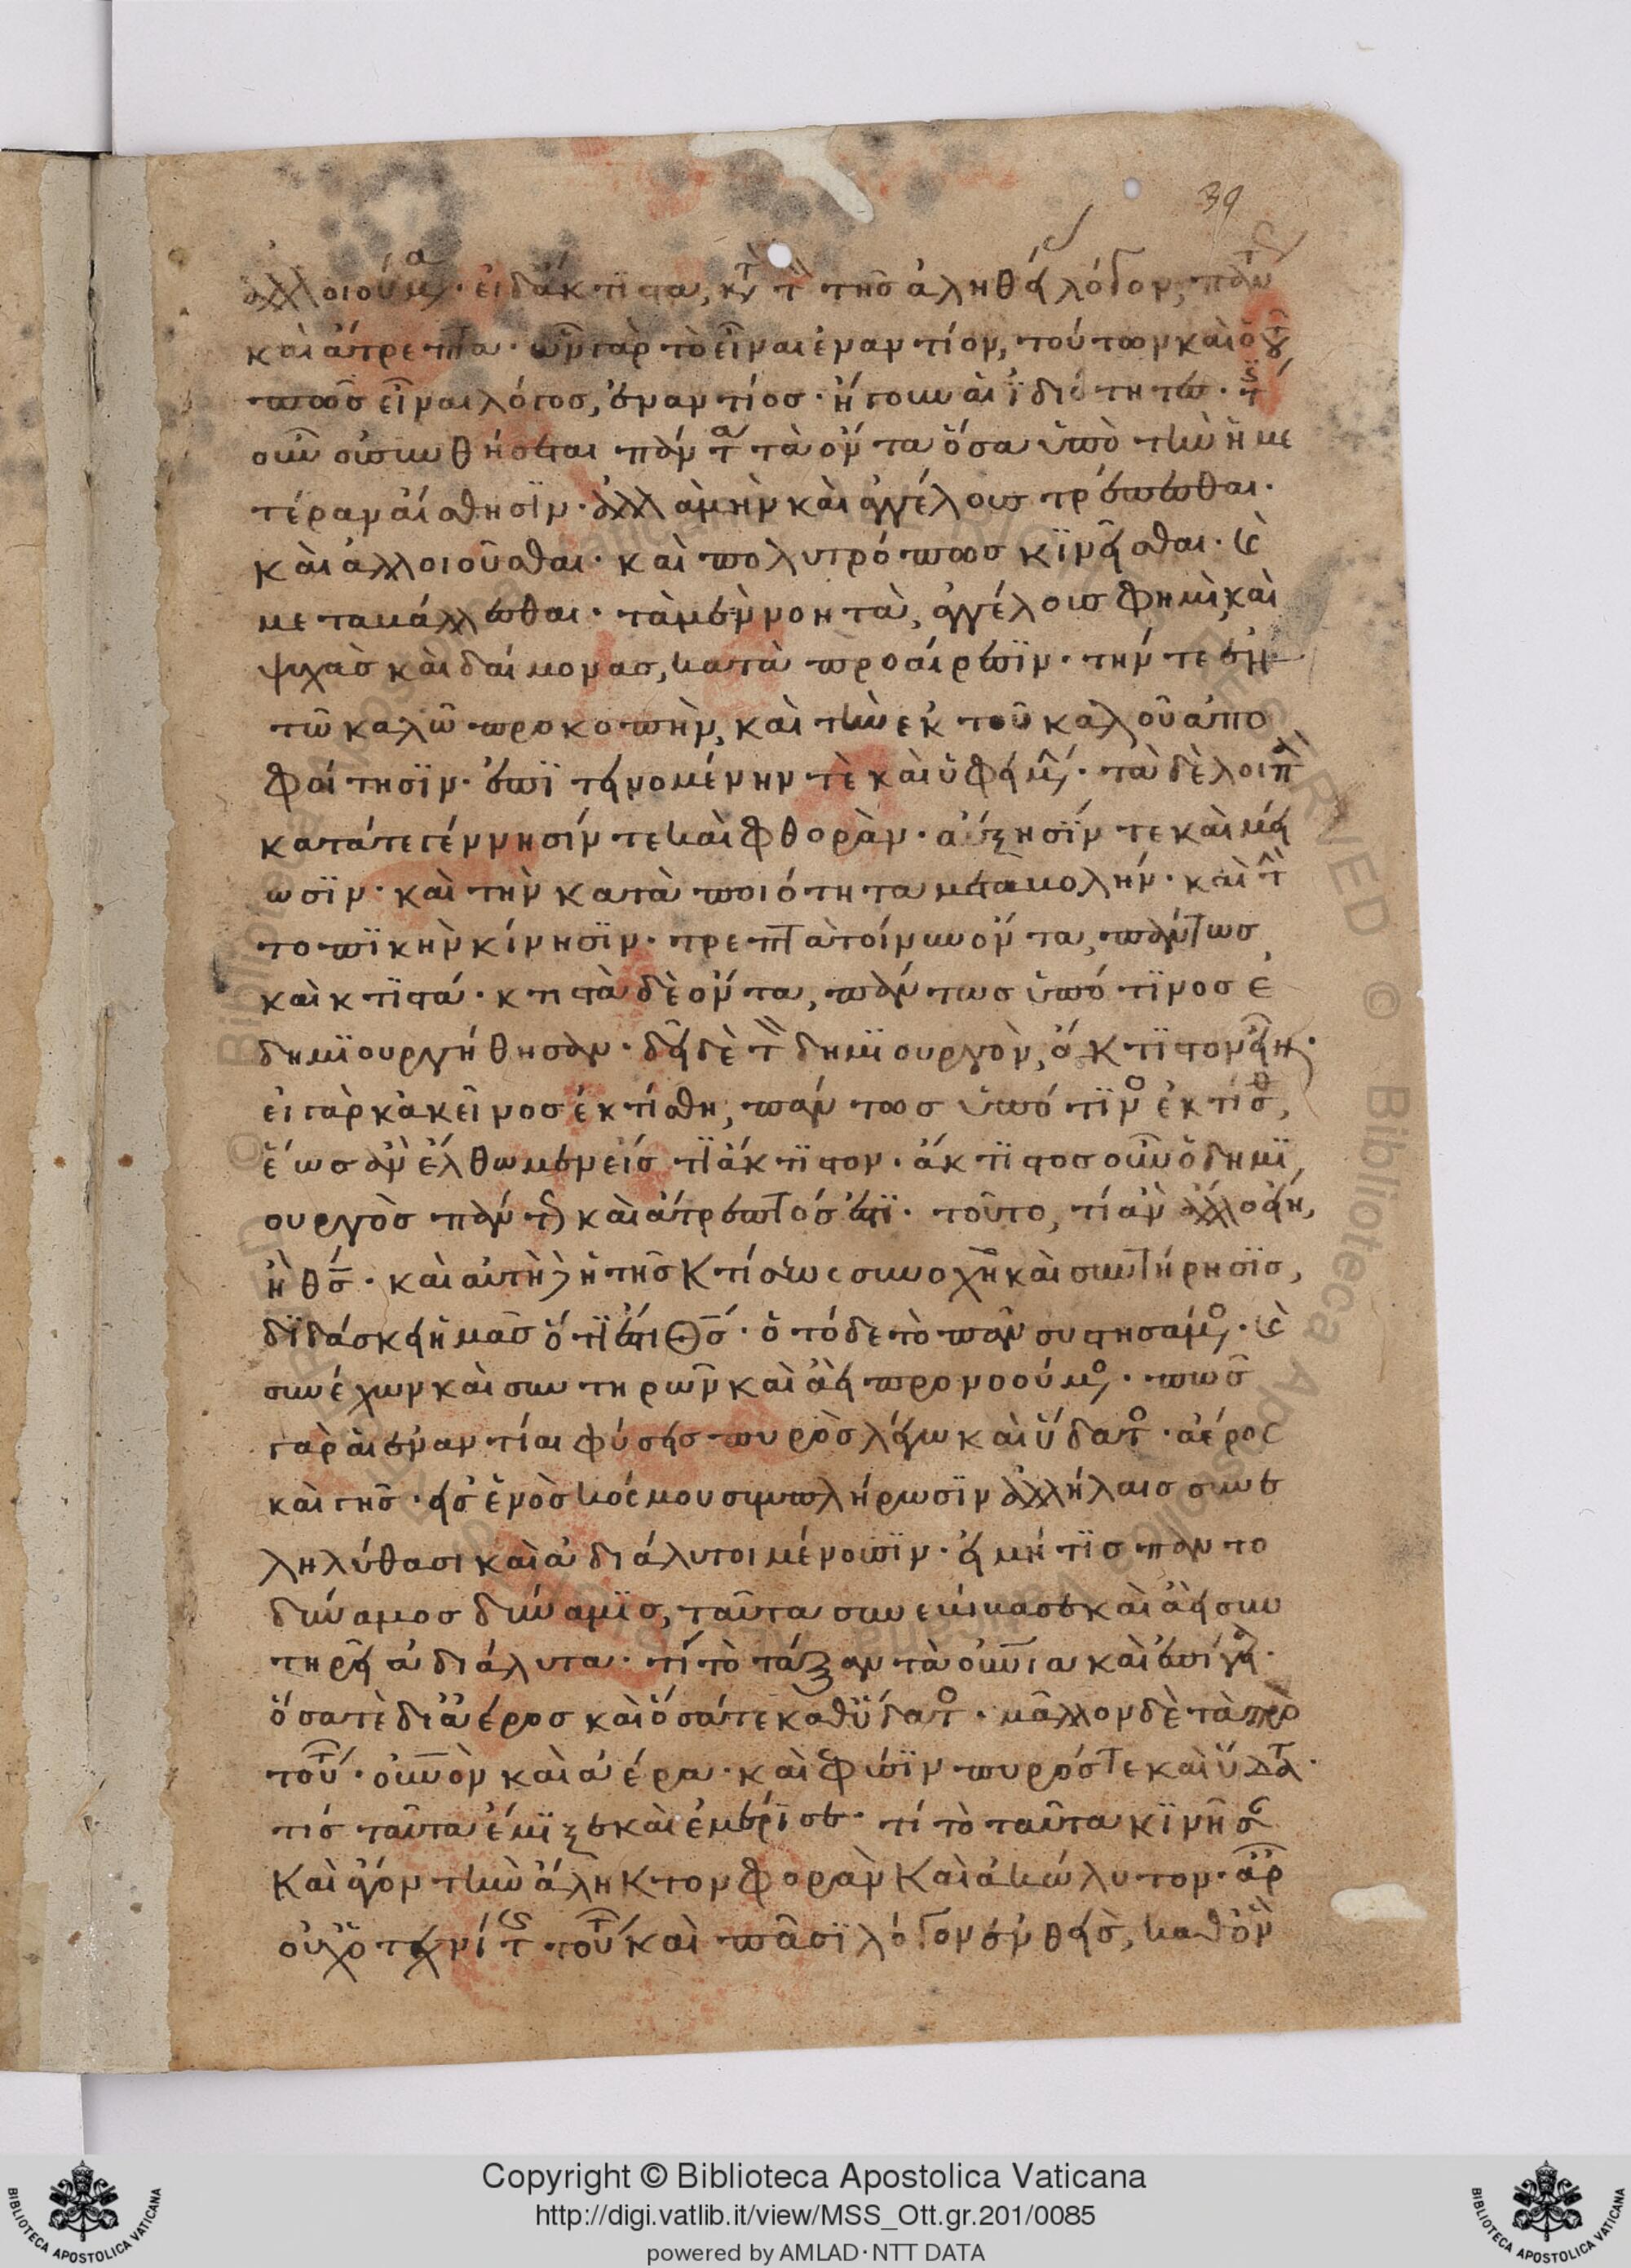 39
ἀλλοιούμενα· εἰ δὲ ἄκτιστα, κατὰ τὸν τῆς ἀληθείας λόγον, πάντως
καὶ ἄτρεπτα· ὧν γὰρ τὸ εἶναι ἐναντίον, τούτων καὶ ὁ τοῦ
πῶς εἶναι λόγος, ἐναντίος· ἤγουν αἱ ἰδιότητες· τίς
οὖν οὐ συνθήσεται πάντα τὰ ὄντα ὅσα ὑπὸ τὴν ἡμε
τέραν αἴσθησιν· ἀλλὰ μὴν καὶ ἀγγέλους τρέπεσθαι·
καὶ ἀλλοιοῦσθαι· καὶ πολυτρόπως κινεῖσθαι· καὶ
μεταβάλλεσθαι· τὰ μὲν νοητὰ, ἀγγέλους φημὶ καὶ
ψυχὰς καὶ δαίμονας, κατὰ προαίρεσιν· τήν τε ἐν
τῷ καλῷ προκοπὴν, καὶ τὴν ἐκ τοῦ καλοῦ ἀπο
φοίτησιν· ἐπιτεινομένην τὲ καὶ ὑφειμένην· τὰ δὲ λοιπὰ
κατά τε γέννησίν τε καὶ φθοράν· αὔξησίν τε καὶ μεί
ωσιν· καὶ τὴν κατὰ ποιότητα μεταβολήν· καὶ τὴν
τοπικὴν κίνησιν· τρεπτὰ τοίνυν ὄντα, πάντως
καὶ κτιστά· κτιστὰ δὲ ὄντα, πάντως ὑπό τινος ἐ
δημιουργήθησαν· δεῖ δὲ τὸν δημιουργὸν, ἄκτιστον εἶναι·
εἰ γὰρ κἀκεῖνος ἐκτίσθη, πάντως ὑπό τινος ἐκτίσθη,
ἕως ἂν ἔλθωμεν εἴς τι ἄκτιστον. ἄκτιστος οὖν ὁ δημι
ουργὸς πάντως καὶ ἄτρεπτός ἐστι. τοῦτο, τί ἂν ἄλλο εἴη,
ἢ θς· καὶ αὐτὴ δὲ ἡ τῆς κτίσεως συνοχὴ καὶ συντήρησις,
διδάσκει ἡμᾶς ὅτι ἔστι Θς· ὁ τόδε τὸ πᾶν συστησάμενος· καὶ
συνέχων καὶ συντηρῶν καὶ ἀεὶ προνοούμενος. πῶς
γὰρ αἱ ἐναντίαι φύσεις πυρὸς λέγω καὶ ὕδατος· ἀέρος
καὶ γῆς· εἰς ἑνὸς κόσμου συμπλήρωσιν ἀλλήλαις συνε
ληλύθασι καὶ ἀδιάλυτοι μένουσιν· εἰ μή τις παντο
δύναμος δύναμις, ταῦτα συνεβίβασε καὶ ἀεὶ συν
τηρεῖ ἀδιάλυτα· τί τὸ τάξαν τὰ οὐνια καὶ ἐπίγεια·
ὅσα τὲ δι' ἀέρος καὶ ὅσά τε καθ' ὕδατος· μᾶλλον δὲ τὰ πρὸ
τούτων· οὐνὸν καὶ ἀέρα· καὶ φύσιν πυρός τε καὶ ὕδατος·
τίς ταῦτα ἔμιξε καὶ ἐμέρισε· τί τὸ ταῦτα κινῆσαν
καὶ ἄγον τὴν ἄληκτον φορὰν καὶ ἀκώλυτον· ἆρ
οὐχ ὁ τεχνίτης τούτων καὶ πᾶσι λόγον ἐνθεὶς, καθ' ὃν
Copyright © Biblioteca Apostolica Vaticana
http://digi.vatlib.it/view/MSS_Ott.gr.201/0085
powered by AMLAD·NTT DATA
BIBLIOTECA APOSTOLICA VATICANA
BIBLIOTECA APOSTOLICA VATICANA